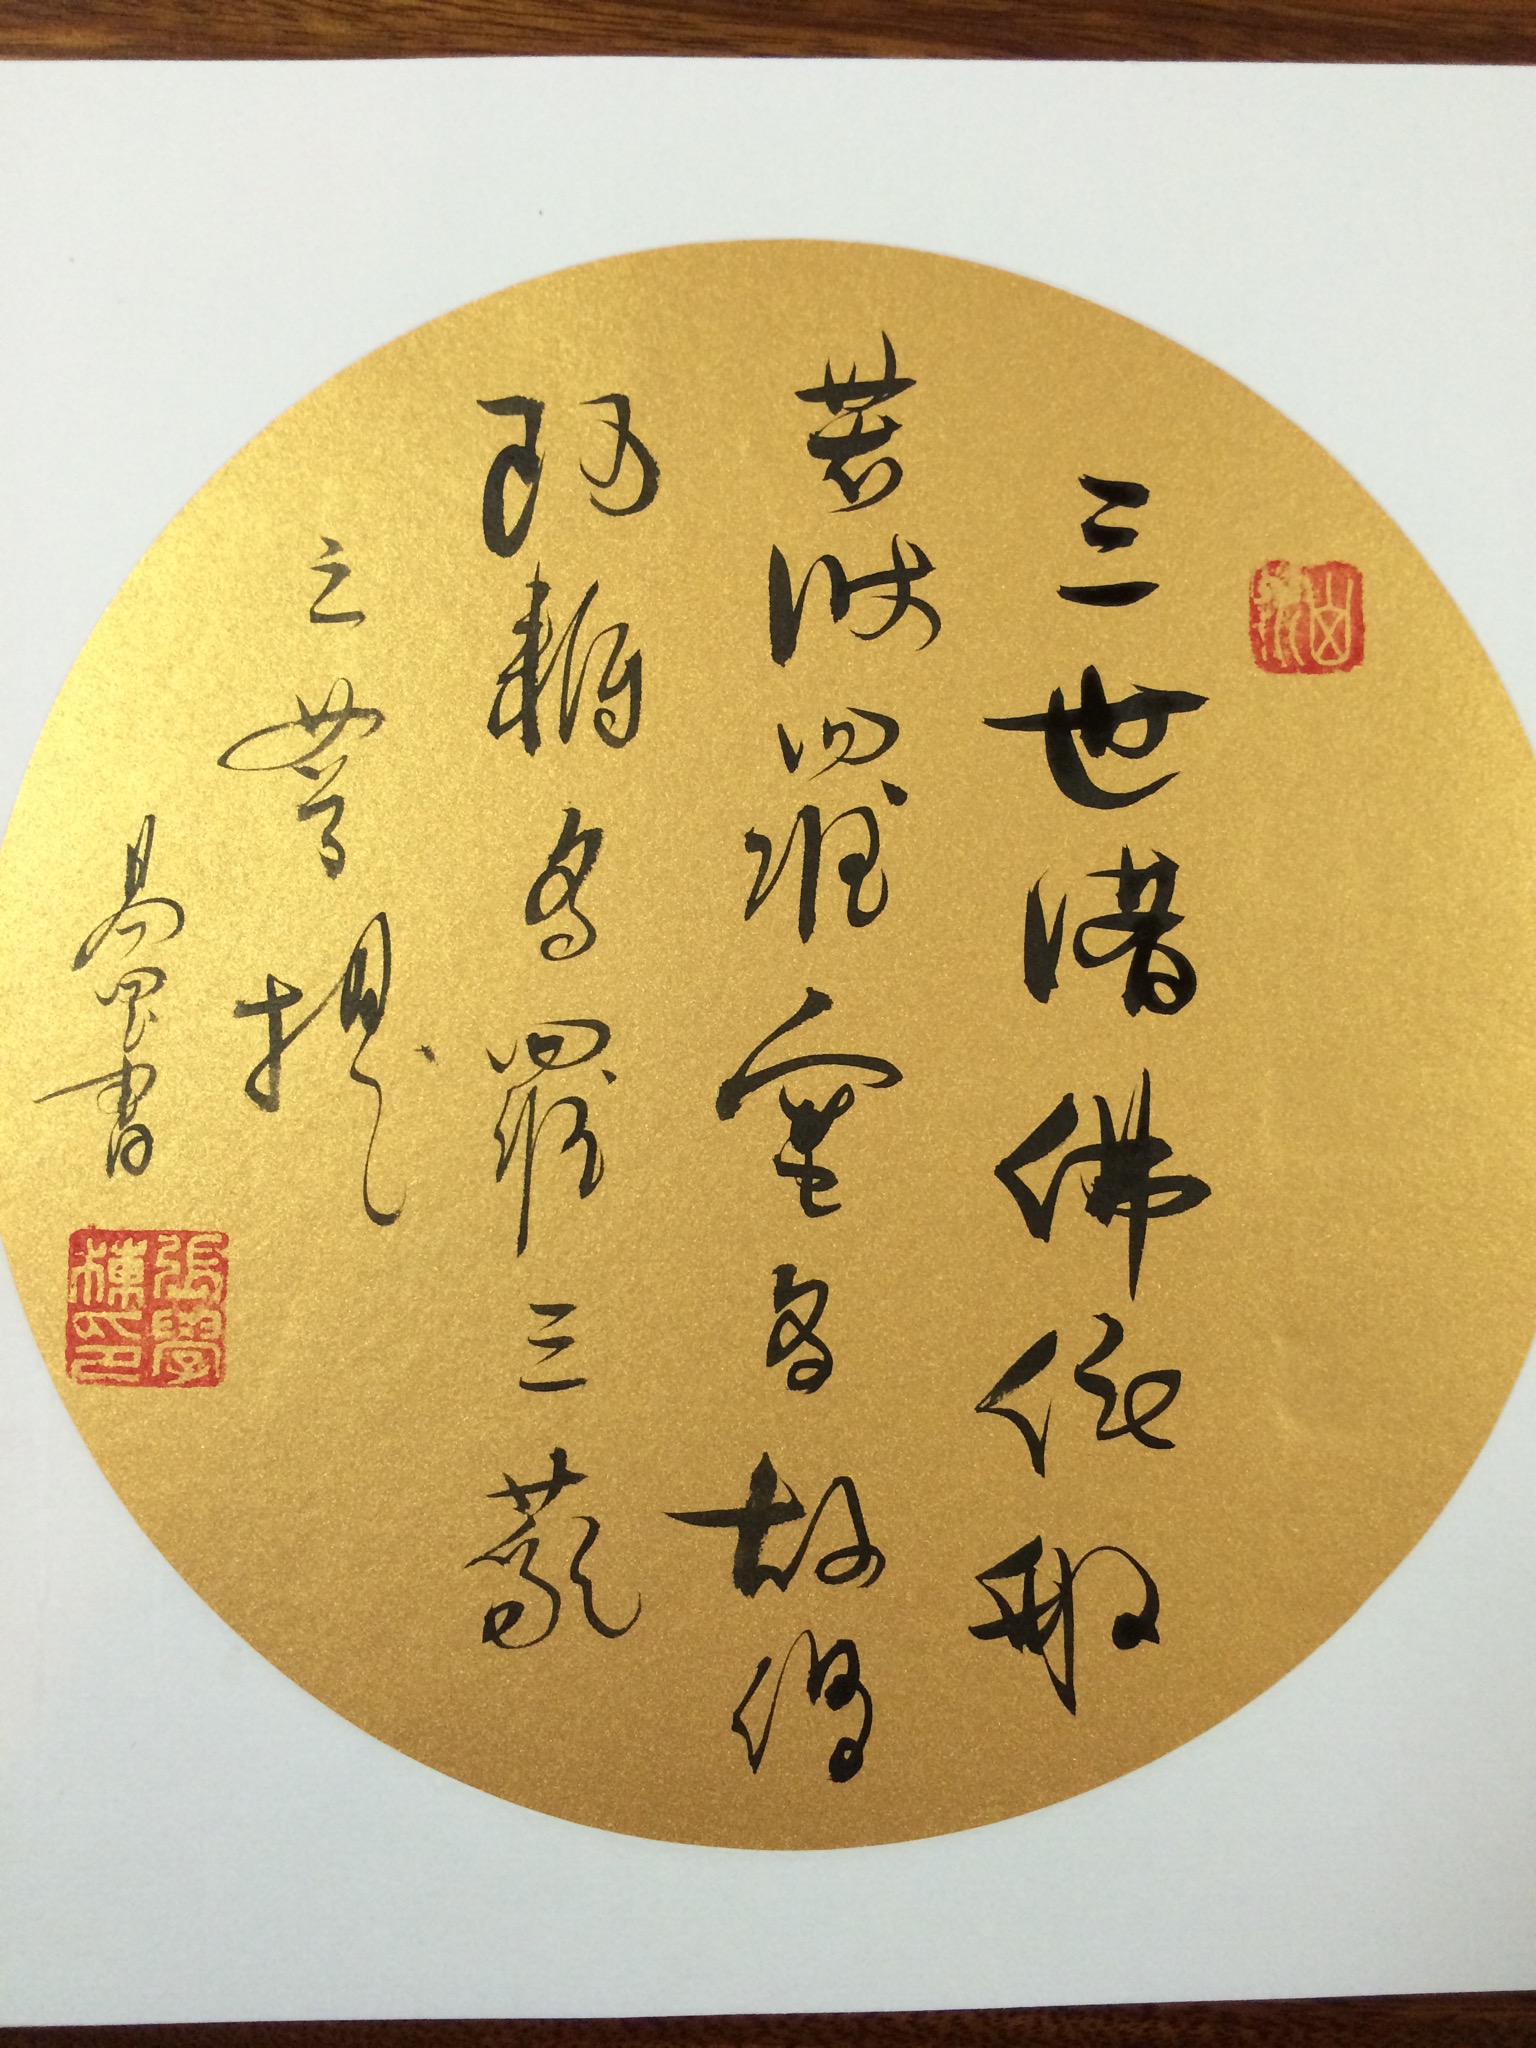 三世諸佛依般
若波羅蜜多故得
阿耨多羅三藐
三菩提
書
張學棟印